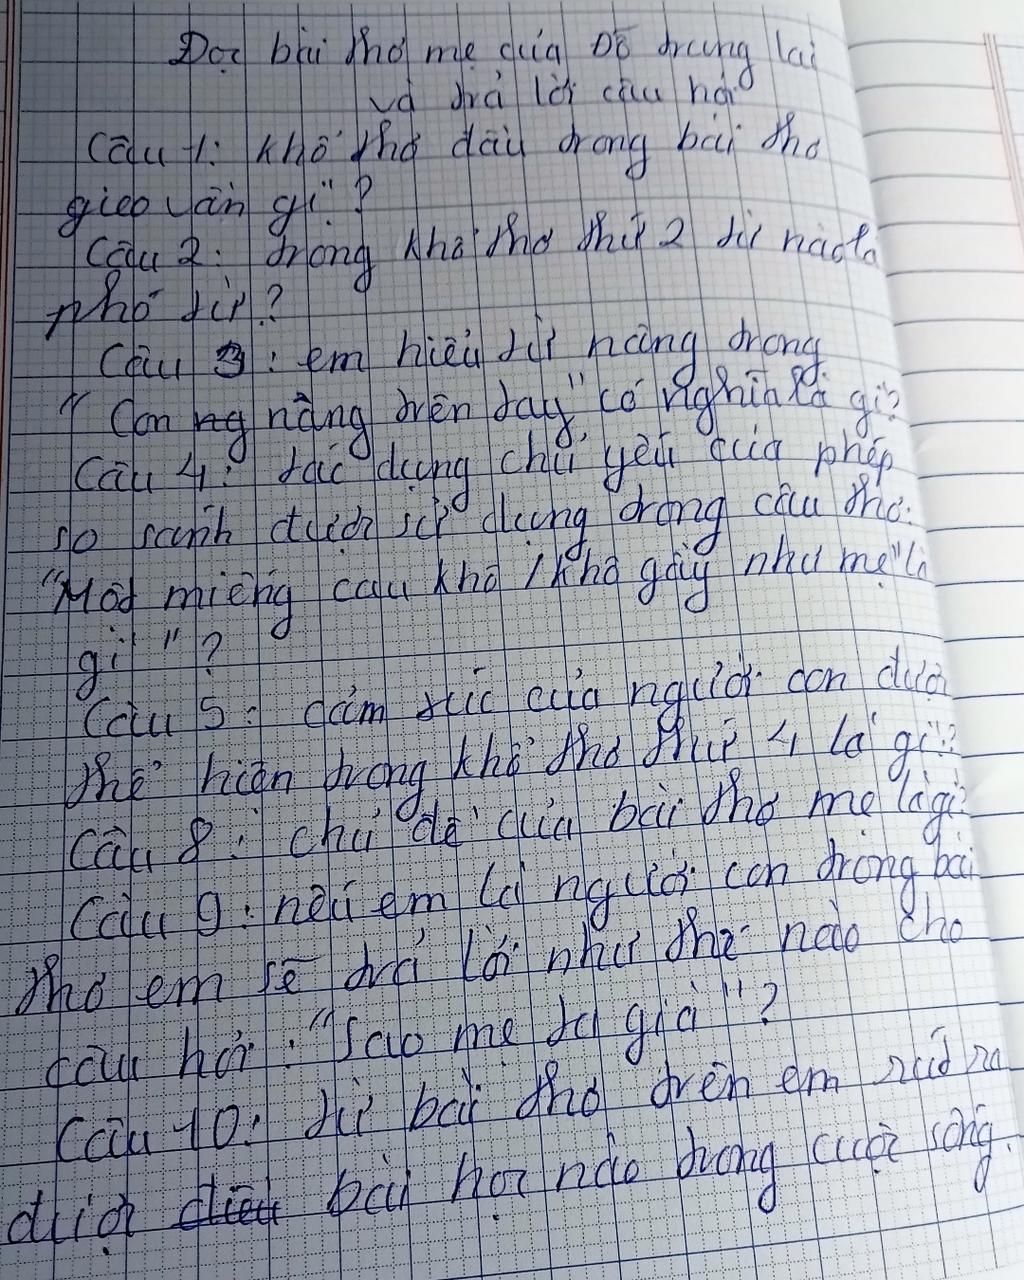 Đọc bài thơ mẹ của Đỗ trung lai
và trả lời câu hỏi
Câu 1: khổ thơ đầu trong bài thơ
gieo vần gì?
Câu 2: trong khổ thơ thứ 2 từ nào là
phó từ?
Câu 3: em hiểu từ nâng trong
"Con nâng trên tay" có nghĩa là gì?
Câu 4: tác dụng chủ yếu của phép
so sánh được sử dụng trong câu thơ:
"Một miếng cau khô / khô gầy như mẹ" là
gì"?
Câu 5: cảm xúc của người con được
thể hiện trong khổ thơ thứ 4 là gì?
Câu 8: chủ đề của bài thơ mẹ là gì?
Câu 9: nếu em là người con trong bài
thơ em sẽ trả lời như thế nào cho
câu hỏi: "Sao mẹ ta già"?
Câu 10: từ bài thơ trên em rút ra
được bài học nào trong cuộc sống